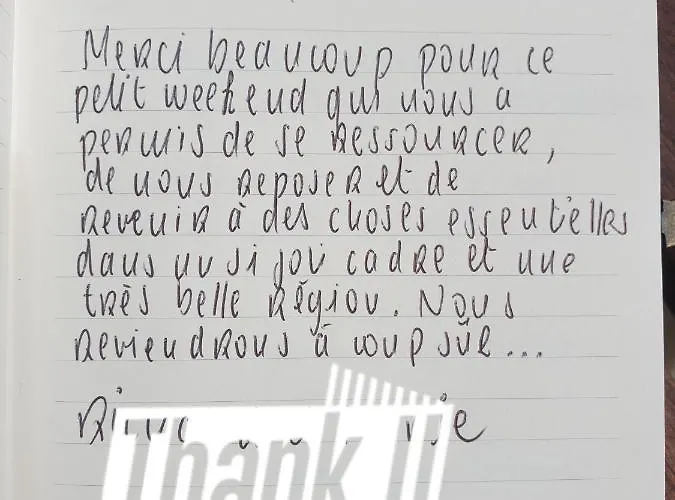 Merci beaucoup pour ce
petit weekend qui nous a
permis de se ressourcer,
de nous reposer et de
revenir à des choses essentielles
dans un si joli cadre et une
très belle région. Nous
reviendrons à coup sûr...
Thank